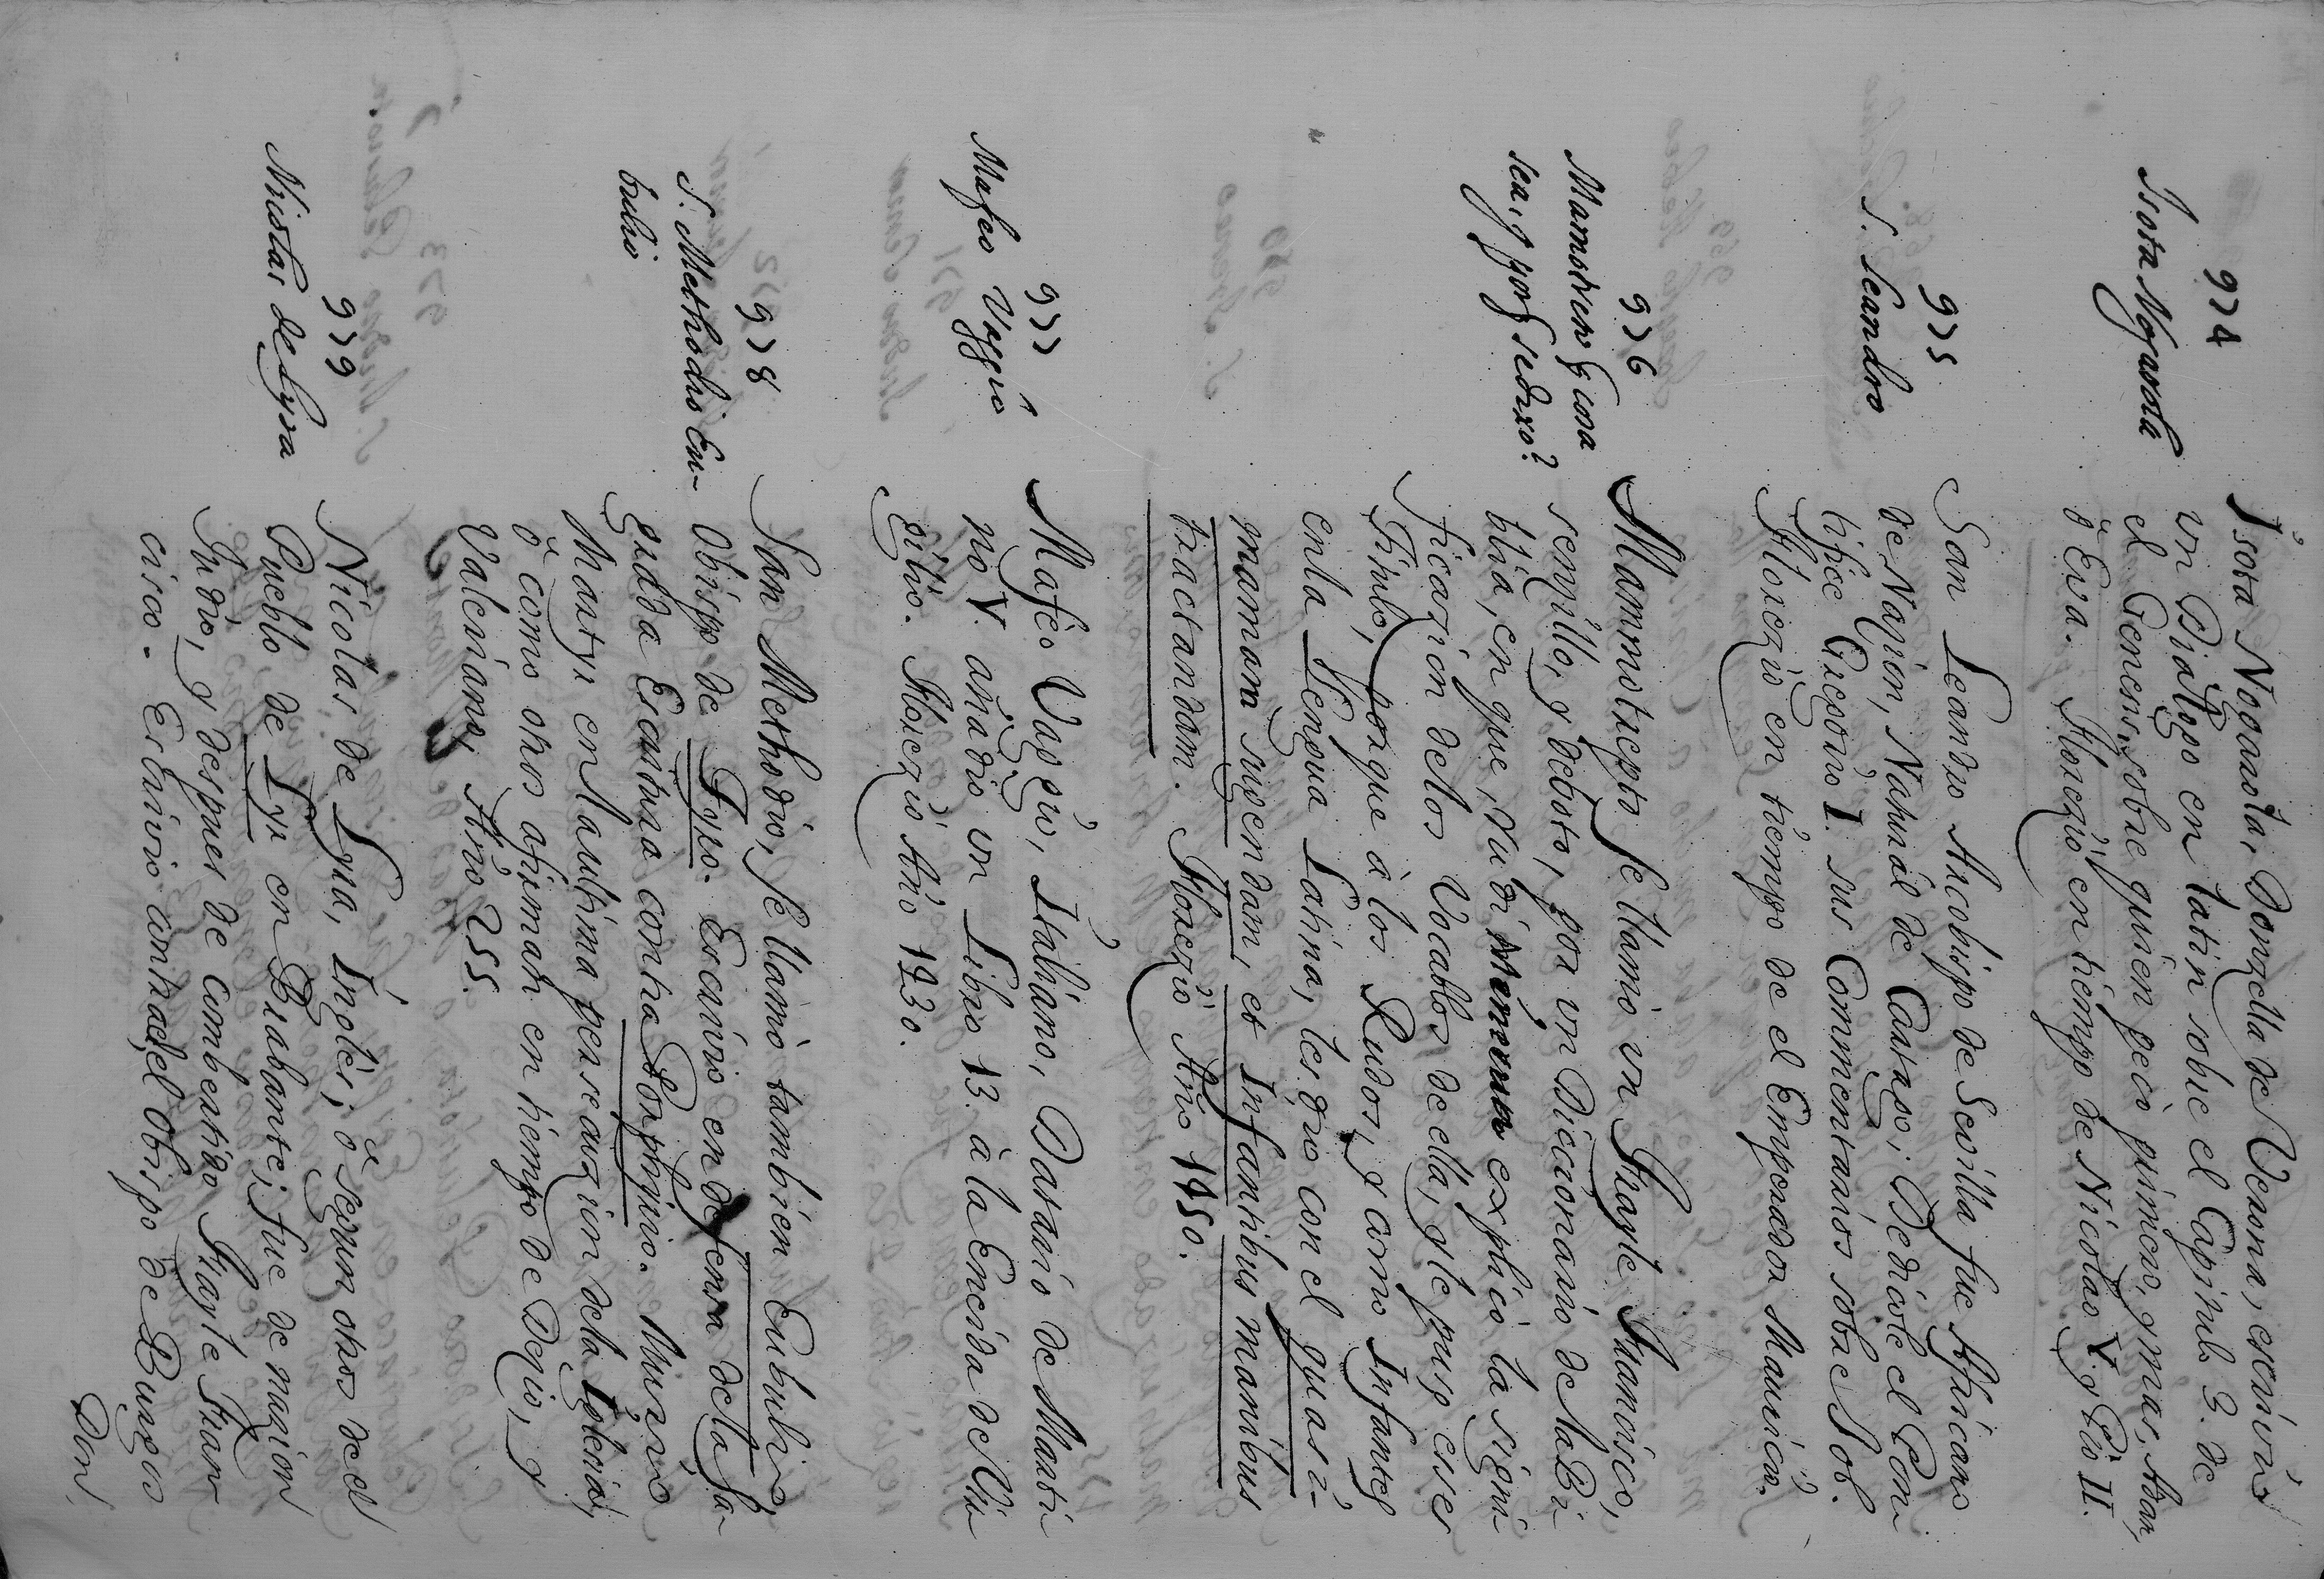 974
Isota Nogarola
Isota Nogarola, Donzella de Verona, escrivió
un Dialogo en latin sobre el Capitulo 3. de
el Genesis, sobre quien pecò primero, y mas, Adan,
ò Eva. Florezio en tiempo de Nicolao V. y Pio II.
975
S. Leandro
San Leandro Arzobispo de Sevilla fue Africano
de Nazion, Natural de Cartago; Dedicole el Pon
tifice Gregorio I. sus Commentarios sobre Job.
Florezio en tiempo de el Emperador Mauricio.
976
Mamotreto q cosa
sea, y por q se dixo?
Mammotrepto se llamò un Frayle Francisco,
senzillo, y deboto, por un Diccionario de la Bi
blia, en que, Ru di Minerva explicò la signi
ficazion delos Vocablos de ella, y le puso este
Titulo, porque à los Rudos, y como Infantes
en la Lengua Latina, les diò con el quasi
mamam sugendam, et Infantibus manibus
tractandam. Florezio Año 1450.
977
Mafeo Veggio
Mafeo Vegeio, Italiano, Datario de Marti
no V. añadiò un Libro 13. à la Eneida de Vir
gilio. Florezio Año 1430.
978
S. Methodio Eu-
bulio
San Methodio, se llamò tambien Eubulio,
Obispo de Tyro. Escrivio en defensa dela Sa
grada Escritura contra Porphirio. Muriò
Martyr en la ultima persecuzion dela Iglesia,
ò como otros afirman en tiempo de Dezio, y
Valeriano, Año 255.
979
Nicolas de Lyra
Nicolas de Lyra, Inglès; ò segun otros de el
Pueblo de Lyr en Brabante; fue de nazion
Judio, y despues de combertido Frayle Fran
cisco. Escrivio contra el Obispo de Burgos
Don